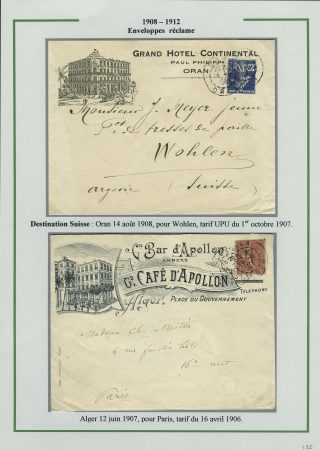 1908 – 1912
Enveloppes réclame
GRAND HOTEL CONTINENTAL
PAUL PHILIPP
ORAN
Monsieur J. Meyer jeune
de tresses de paille
Wohlen
argovie (Suisse)
Destination Suisse : Oran 14 août 1908, pour Wohlen, tarif UPU du 1er octobre 1907.
Gd Bar d'Apollon
ANNEXE
Gd CAFÉ D'APOLLON
Alger
PLACE DU GOUVERNEMENT
TÉLÉPHONE
Madame
Paris
Alger 12 juin 1907, pour Paris, tarif du 16 avril 1906.